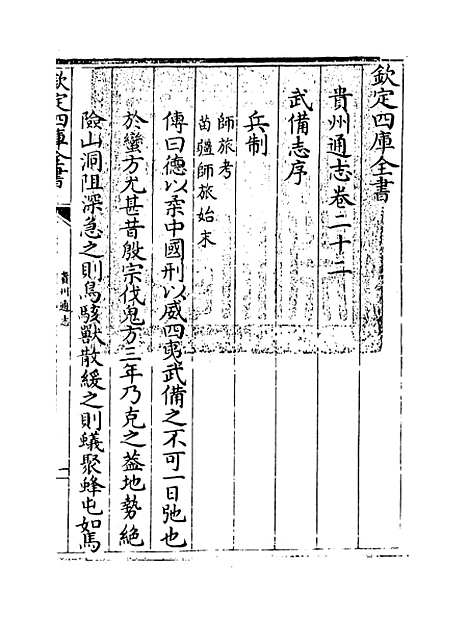 欽定四庫全書
貴州通志卷二十二
武備志序
兵制
師旅考
苗疆師旅始末
傳曰德以柔中國刑以威四夷武備之不可一日弛也
於蠻方尤甚昔殷宗伐鬼方三年乃克之蓋地勢絶
險山洞阻深急之則鳥駭獸散緩之則蟻聚蜂屯如馬
欽定四庫全書
貴州通志